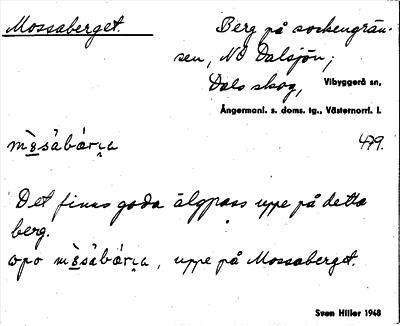 Mossaberget. Berg på sockengrän-
sen, NO Dalsjön,
Dals skog, Vibyggerå sn,
Ångermanl. s. doms. tg., Västernorrl. l.
479.
Det finns goda älgpass uppe på detta
berg.
opo, uppe på Mossaberget.
Sven Hiller 1948